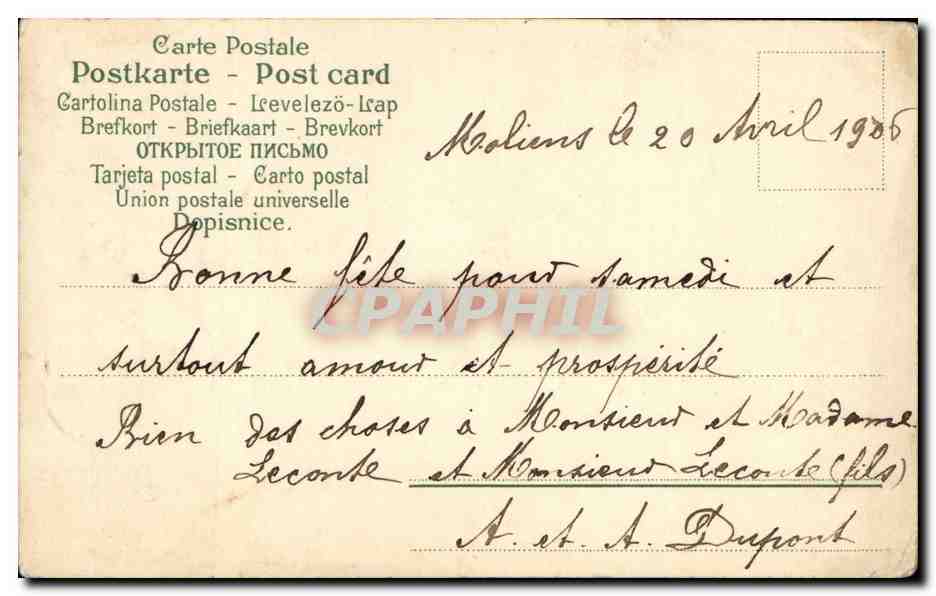 Carte Postale
Postkarte - Post card
Cartolina Postale - Levelezö-Lap
Brefkort - Briefkaart - Brevkort
ОТКРЫТОЕ ПИСЬМО
Tarjeta postal - Carto postal
Union postale universelle
Dopisnice.
Moliens le 20 Avril 1906
Bonne fête pour samedi et
CPAPHIL
surtout amour et prospérité
Bien des choses à Monsieur et Madame
Leconte et Monsieur Leconte (fils)
A. et. A. Dupont